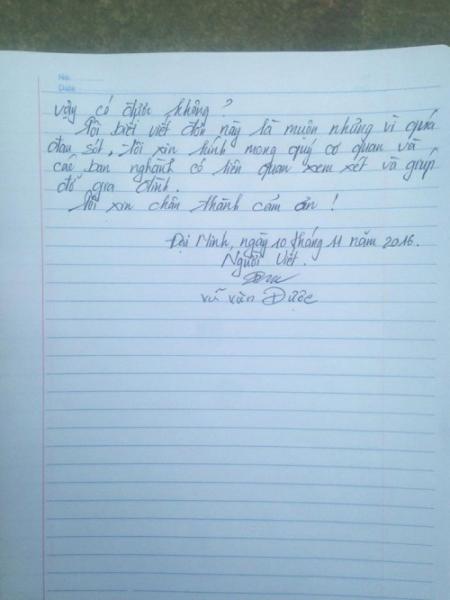 No.
Date
vậy có được không?
Tôi biết viết đơn này là muộn nhưng vì quá
đau sót, Tôi xin kính mong quý cơ quan và
các ban nghành có liên quan xem xét và giúp
đỡ gia đình.
Tôi xin chân thành cảm ơn!
Đại Minh, ngày 10 tháng 11 năm 2016.
Người Viết.
Vũ Văn Được